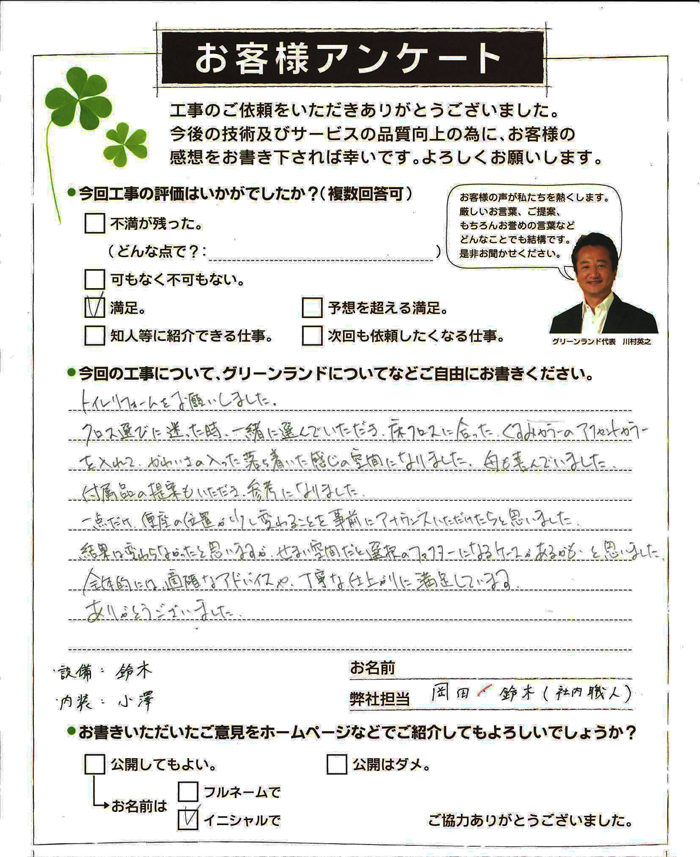 お客様アンケート
工事のご依頼をいただきありがとうございました。
今後の技術及びサービスの品質向上の為に、お客様の
感想をお書き下されば幸いです。よろしくお願いします。
●今回工事の評価はいかがでしたか？（複数回答可）
不満が残った。
（どんな点で？：　）
可もなく不可もない。
満足。
予想を超える満足。
知人等に紹介できる仕事。
次回も依頼したくなる仕事。
お客様の声が私たちを熱くします。
厳しいお言葉、ご提案、
もちろんお誉めの言葉など
どんなことでも結構です。
是非お聞かせください。
グリーンランド代表　川村英之
●今回の工事について、グリーンランドについてなどご自由にお書きください。
トイレリフォームをお願いしました。
クロス選びに迷った時、一緒に選んでいただき、床クロスに合ったくるみカラーのアクセントカラー
を入れて、かわいさの入った落ち着いた感じの空間になりました。母も喜んでいました。
付属品の提案もいただき、参考になりました。
一点だけ、便座の位置が少し変わることを事前にアナウンスいただけたらと思いました。
結果は変わらなかったと思いますが、せまい空間だと選択のファクターになるケースがあるかも…と思いました。
全体的には、適確なアドバイスや、丁寧な仕上がりに満足しています。
ありがとうございました。
・設備：鈴木
・内装：小澤
お名前
弊社担当　岡田　鈴木（社内職人）
●お書きいただいたご意見をホームページなどでご紹介してもよろしいでしょうか？
公開してもよい。
公開はダメ。
お名前は
フルネームで
イニシャルで
ご協力ありがとうございました。